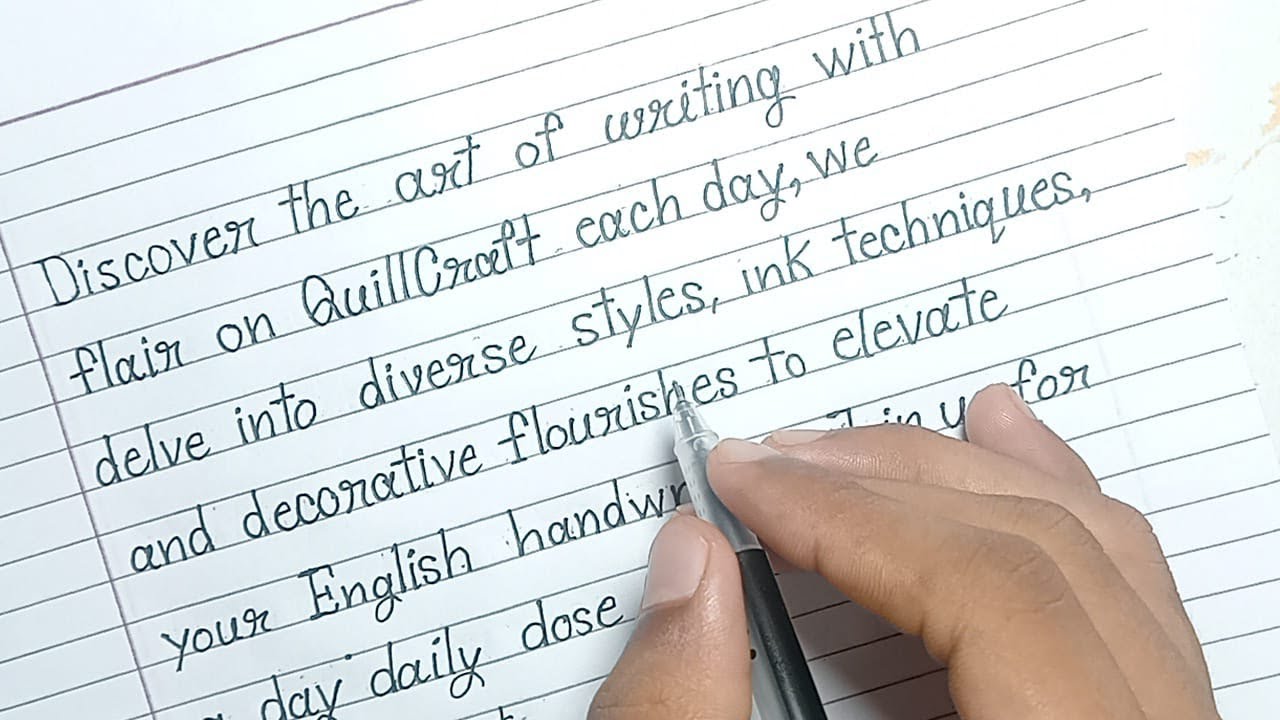 Discover the art of writing with
flair on QuillCraft each day, we
delve into diverse styles, ink techniques,
and decorative flourishes to elevate
your English in for
day daily dose